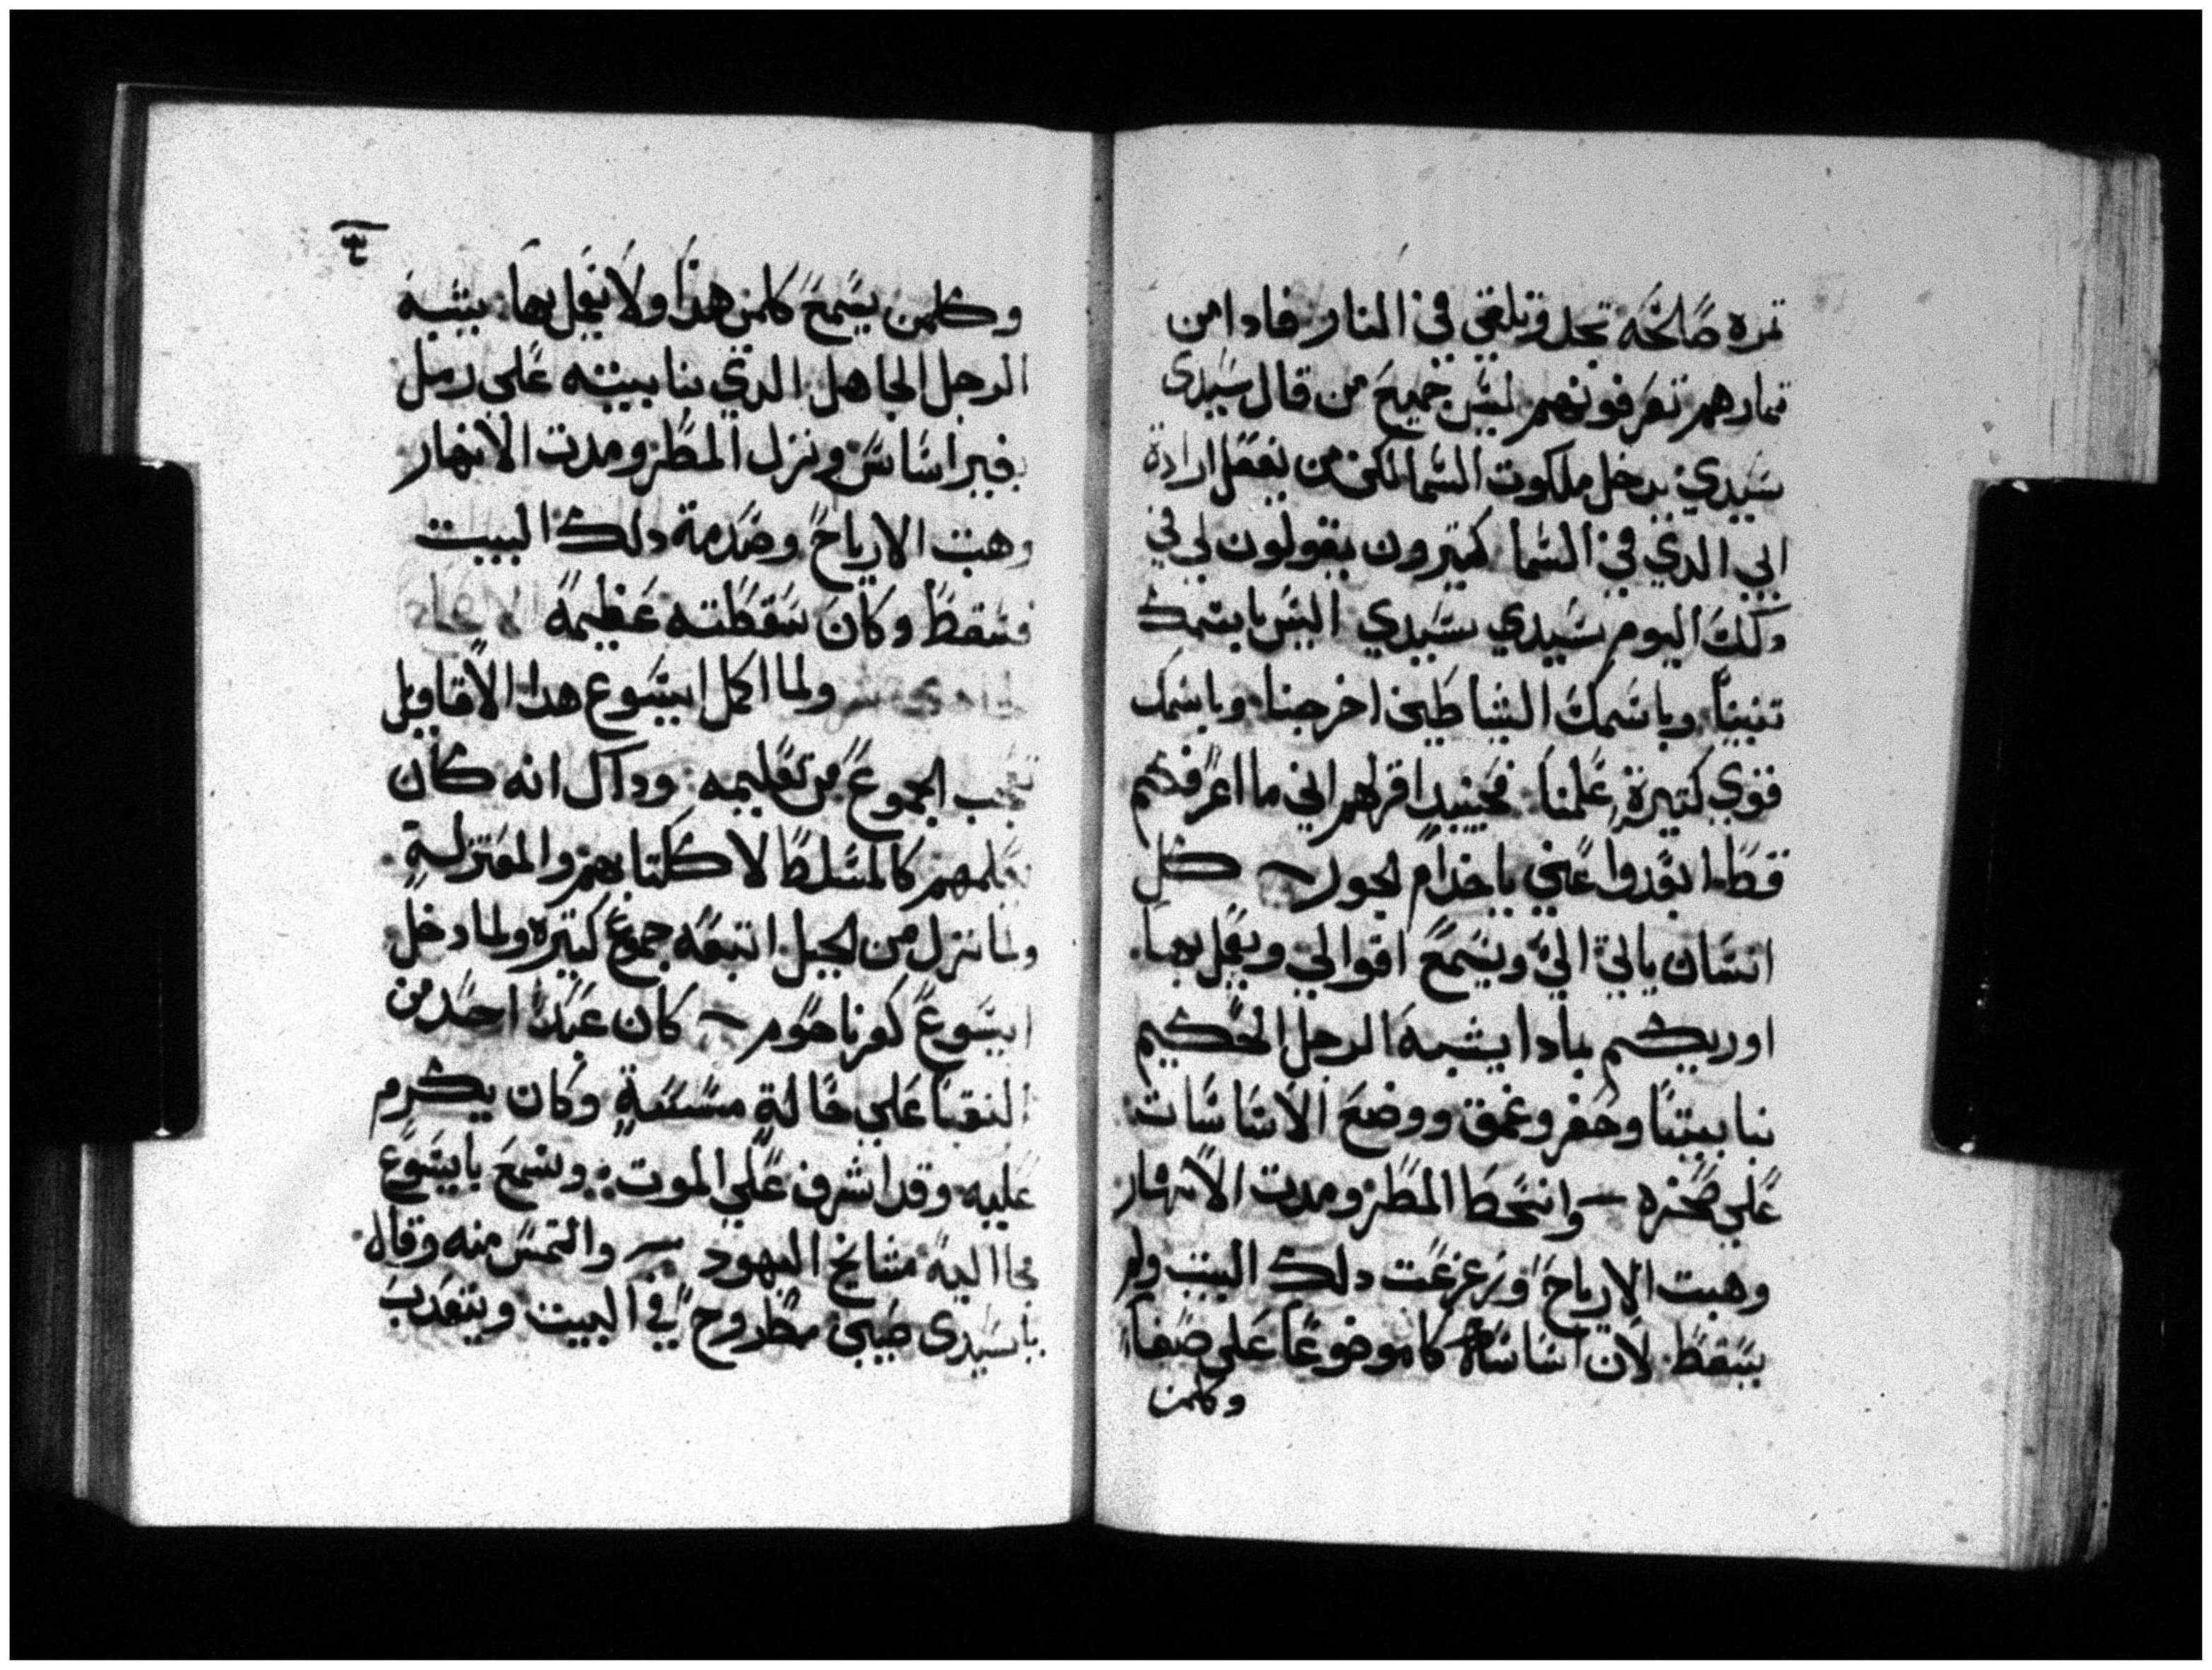 تمره صالحه تجد وتلقي في النار فادا من
تمارهم تعرفونهم ليس جميع من قال سيدي
سيدي يدخل ملكوت السما لكن من يفعل ارادة
ابي الدي في السما كتيرون يقولون لي في
دلك اليوم سيدي سيدي اليس باسمك
تنبينا وباسمك الشياطين اخرجنا وباسمك
قوي كتيرة علمنا فحينيد اقر لهم اني ما اعرفكم
قط ابعدوا عني يا خدام الجور كل
انسان ياتي الي ويسمع اقوالي ويعمل بها
اوريكم بمادا يشبه الرجل الحكيم
بنا بيتا وحفر وعمق ووضع الاساسات
علي صخره وانحط المطر ومدت الانهار
وهبت الارياح وزعزعت دلك البيت ولم
يسقط لان اساساته كا موضوعا على صفا
وكلمن
وكلمن يسمع كلمن هدا ولا يعمل بها يشبه
الرجل الجاهل الدي بنا بيته على رمل
بغير اساس ونزل المطر ومدت الانهار
وهبت الارياح وصدمة دلك البيت
فسقط وكان سقطته عظيمة
ولما اكمل ايسوع هدا الاقاويل
تعجب الجموع من تعليمه ودآك انه كان
يعلمهم كالمسلط لا ككتابهم والمعتزلة
ولما نزل من الجبل اتبعه جموع كتيره ولما دخل
ايسوع كفرناحوم كان عبد احد من
النقبا علي حالة مسيية وكان يكرم
عليه وقد اشرف علي الموت وسمع بايسوع
فجا اليه مشايخ اليهود والتمس منه وقال
يا سيدي صبي مطروح في البيت ويتعدب